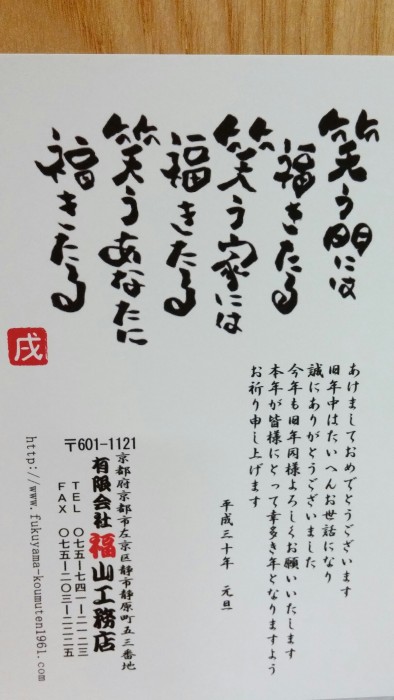 笑う門には
福きたる
笑う家には
福きたる
笑うあなたに
福きたる
戌
あけましておめでとうございます
旧年中はたいへんお世話になり
誠にありがとうございました
今年も旧年同様よろしくお願いいたします
本年が皆様にとって幸多き年となりますよう
お祈り申し上げます
平成三十年 元旦
京都府京都市左京区静市静原町五三番地
〒601-1121
有限会社 福山工務店
TEL 〇七五-七四一-二一二三
FAX 〇七五-二〇三-二二二五
http://www.fukuyama-koumuten1961.com